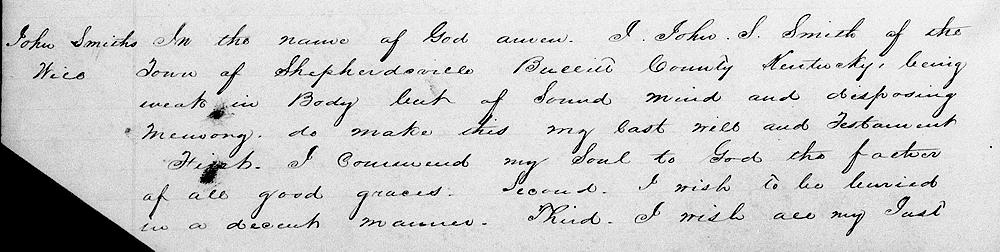 John Smiths In the name of God amen. I. John. S. Smith of the
Will Town of Shepherdsville Bullitt County Kentucky, being
weak in Body but of Sound mind and disposing
Memory. do make this my last will and Testament
First. I Commend my Soul to God the father
of all good graces. Second. I wish to be buried
in a decent manner. Third. I wish all my Just